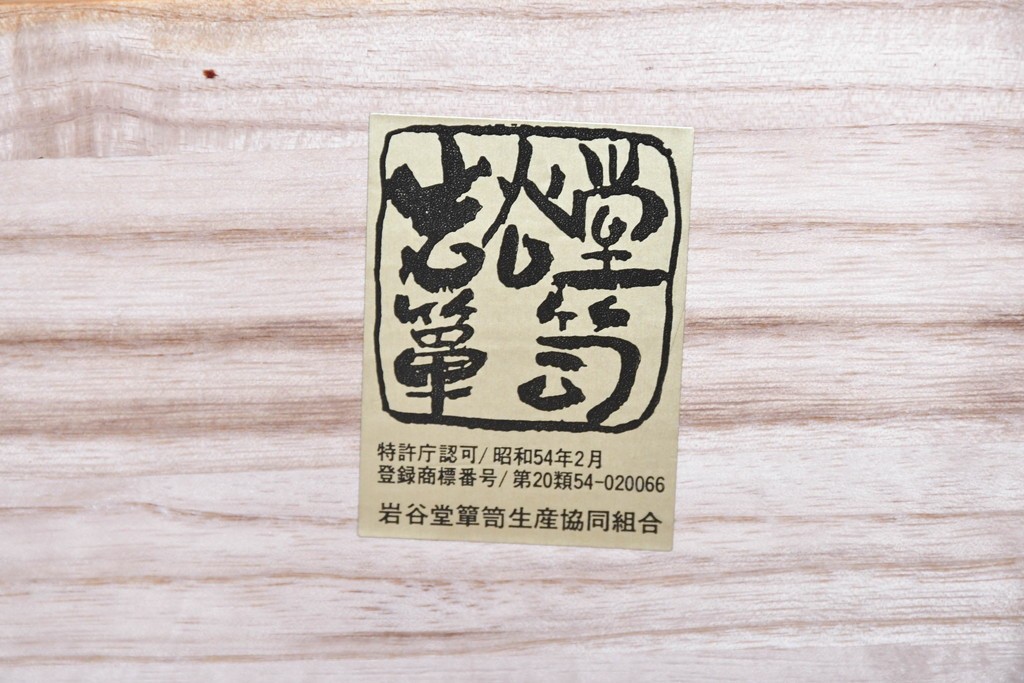 岩谷堂
簞笥
特許庁認可/昭和54年2月
登録商標番号/第20類54-020066
岩谷堂簞笥生産協同組合